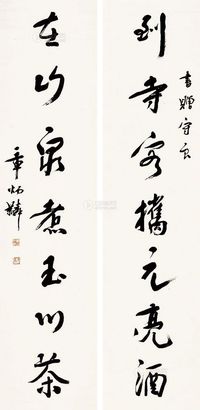 書贈守
到寺客攜元亮酒
在山泉煮玉川茶
章炳麟